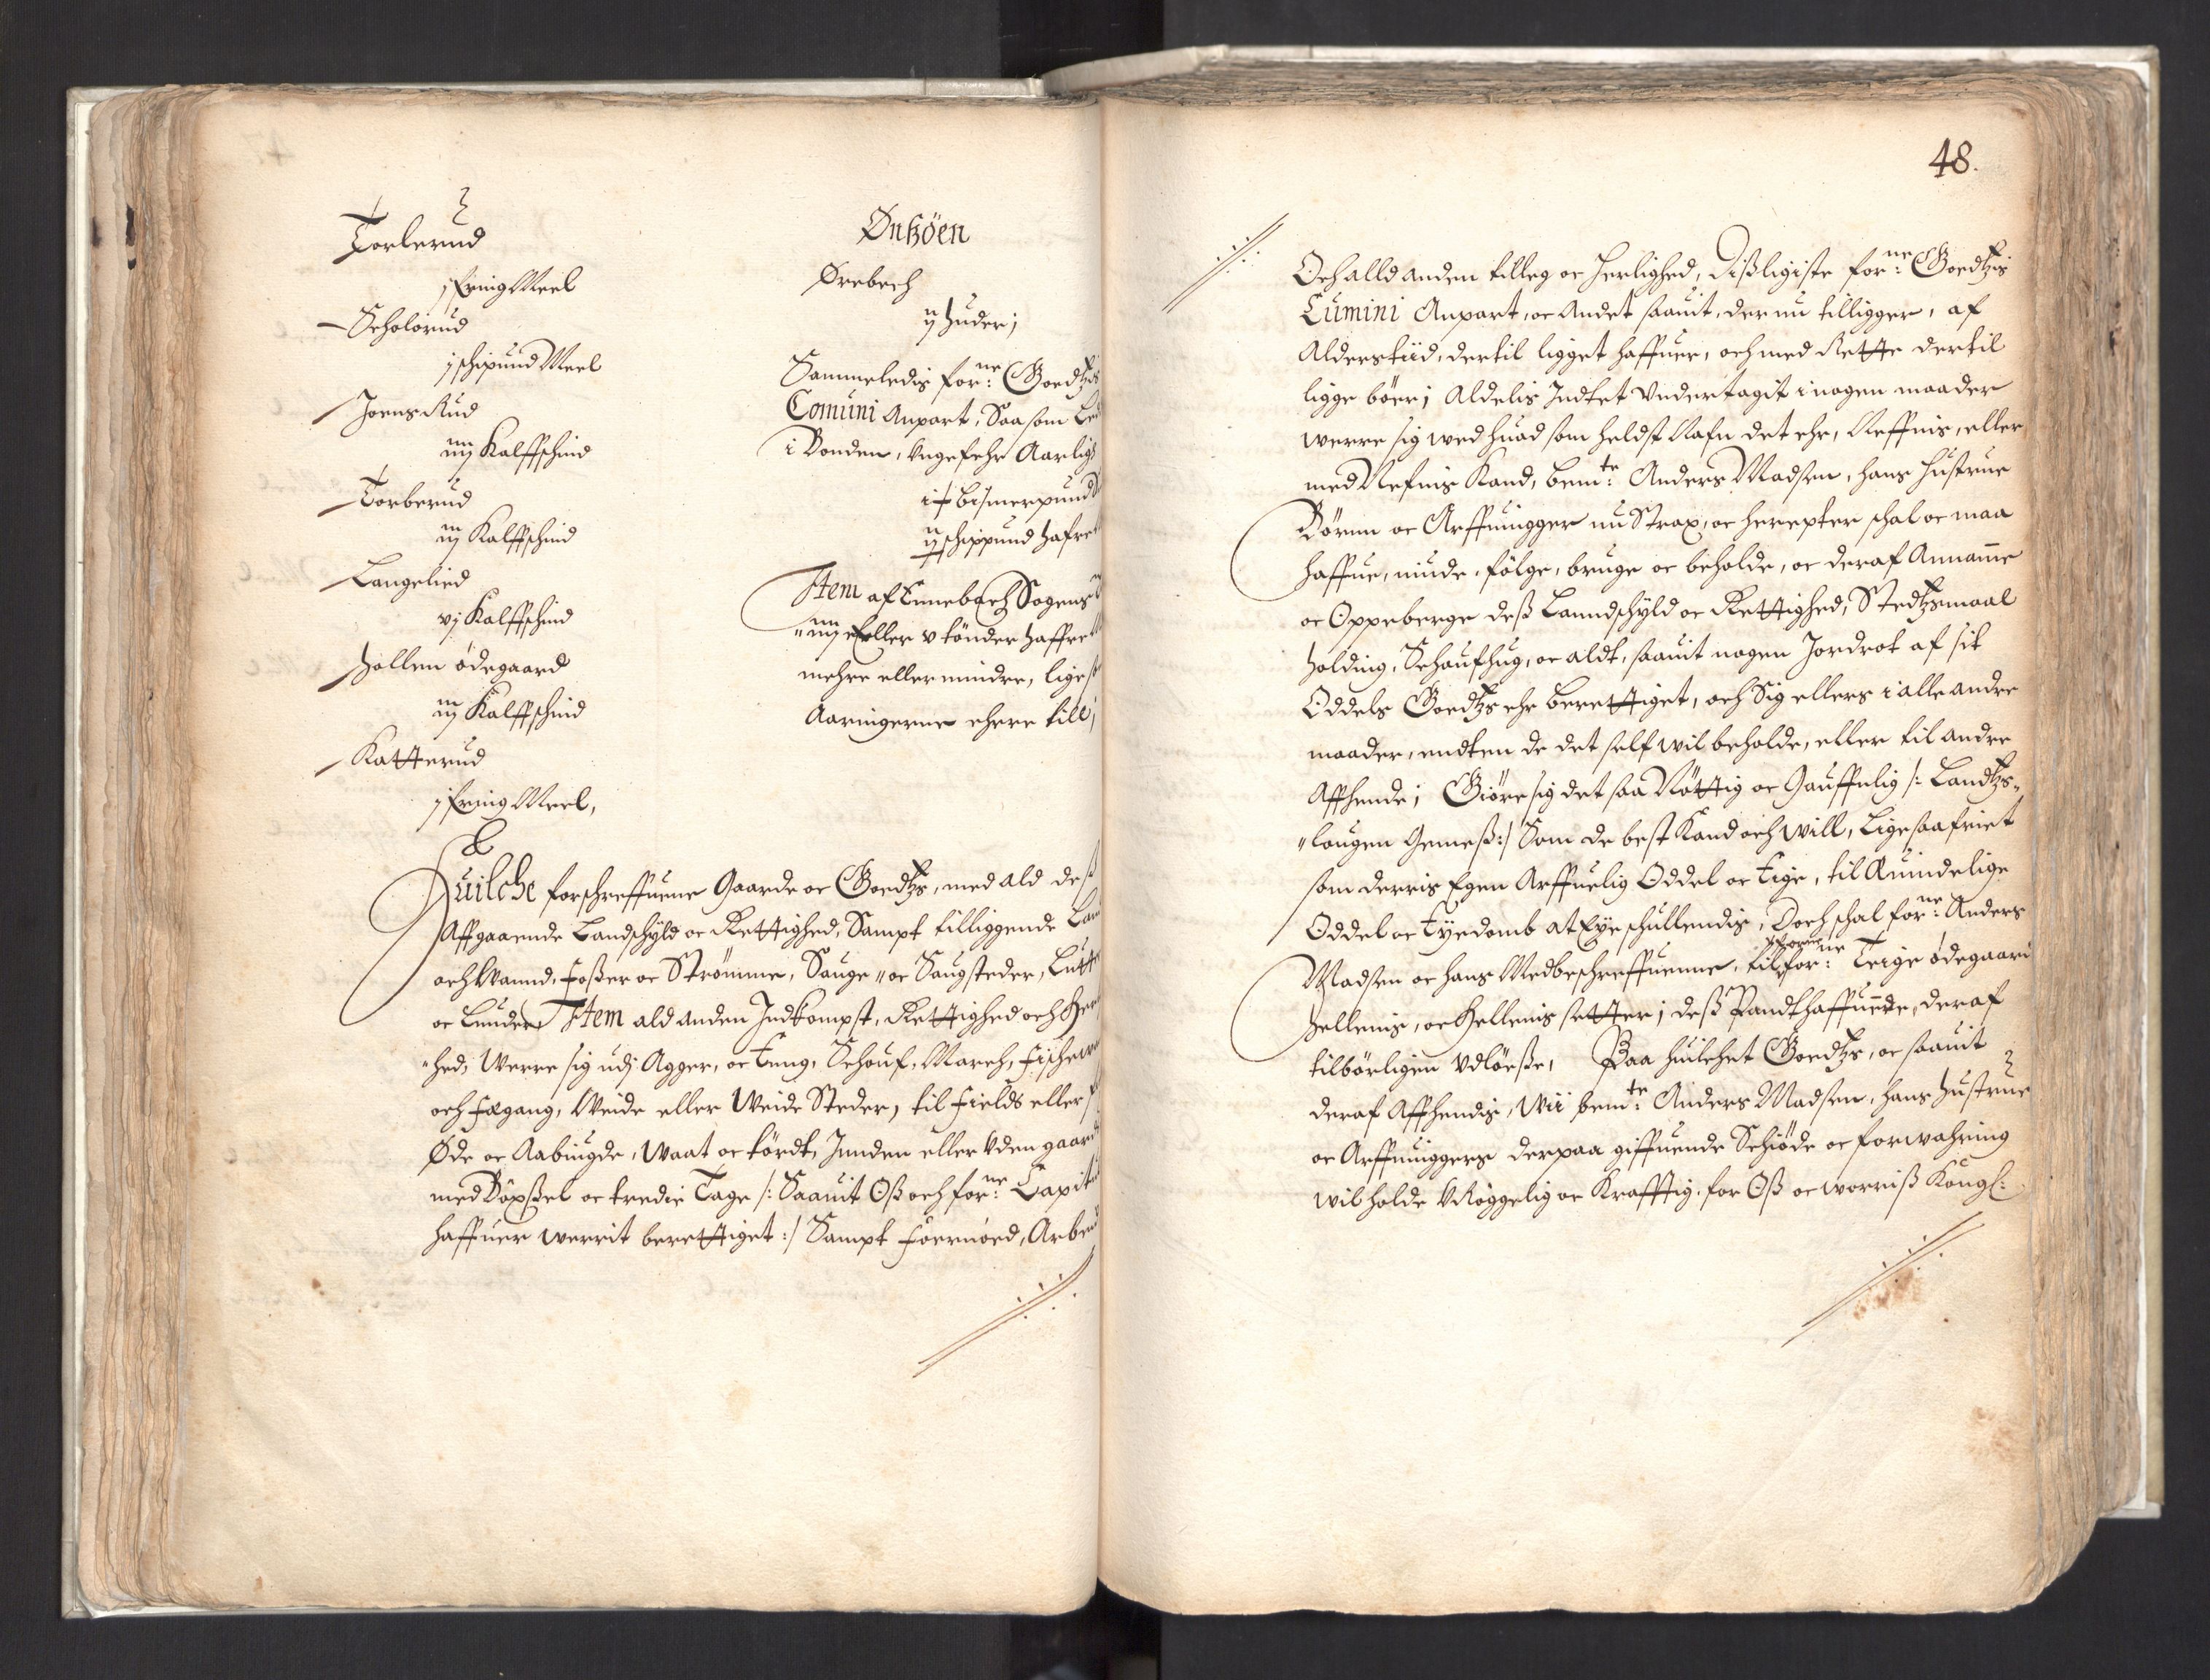 Torlerud
j Fring Meel
Scholorud
j schipund Meel
Joens Rud
iiij Kalffschind
Torberud
iij Kalffschind
Langelied
vj Kalffschind
Hollen ödegaard
iij Kalffschind
Katterud
j Fring Meel,
Ørebech
ij Huder;
Sammeledis forne: Goedtzis
Comuni Anpart, Saa som
i Bonden, Ungefehr Aarlig
Bismerpund
ij schippund Hafre
Item af Ennebach Sogens
iiij Eller v tönder Haffre
mehre eller mindre, liges
Aaringerne ehere till;
Huilche forschreffuene Gaarde oc Goedtzs, med ald deß
Affgaaende Landschyld oc Rettighed, Sampt tilliggende
och Vannd, Foßer oc Strömme, Sauge oc Saugsteder,
oc Lunder Item ald anden Indkompst, Rettighed och Her
hed, Werre sig udj Agger, oc Eng, Schouf, March,
och Fægang, Weide eller Weide Steder, til Fields eller
Øde oc Aabiugde, Waat oc tördt, Innden eller Uden gaards
med Böxßel oc tredie Tage /: Saauit Oß och forne: Capit
haffuer werrit berettiget :/ Sampt Foernoed, Arbe
48.
Och alld anden tilleg oc Herlighed, Dißligiste forne: Goedtzis
Cumini Anpart, oc Andet saauit, der nu tilligger, af
Alderstiid, dertil ligget haffuer, och med Rette dertil
ligge böer; Aldelis Indtet Undertagit i nogen maader
werre sig wed huad som heldst Nafn det ehr, Neffnis, eller
med Nefnis Kand, bemte: Anders Madsen, hans Hustrue
Börnn oc Arffuingger nu Strax, oc herepter schal oc maa
haffue, niude, fölge, bruge oc beholde, oc deraf Annamme
oc Oppeberge deß Lanndschyld oc Rettighed, Stedtzmaal
Holding, Schoufhug, oc aldt, saauit nogen Jordrot af sit
Oddels Goedtzs ehr berettiget, och Sig ellers i alle andre
maader, endten de det self wil beholde, eller til andre
Affhende; Giöre sig det saa Nöttig oc Gauffnlig /: Landtzs-
lougen Gemeß :/ Som de best Kand och will, Lige saa friet
som derris Egen Arffuelig Oddel oc Eige, til Æuindelige
Oddel oc Eyedomb at Eye schullendis, Doch schal forne: Anders
Madsen oc hans Medbeschreffuenne, til forne: Teige ödegaard
Hellenis, oc Hellenis setter; deß Pandthaffuende, deraf
tilbörligen Udlöeße, Paa huilchet Goedtzs, oc saauit
deraf Affhendis, Wii bemte: Anders Madsen, hans Hustrue
oc Arffuinggers derpaa giffuende Schiöde oc forwahring
wil holde URöggelig oc Krafftig, for Oß oc worriß Kongl: